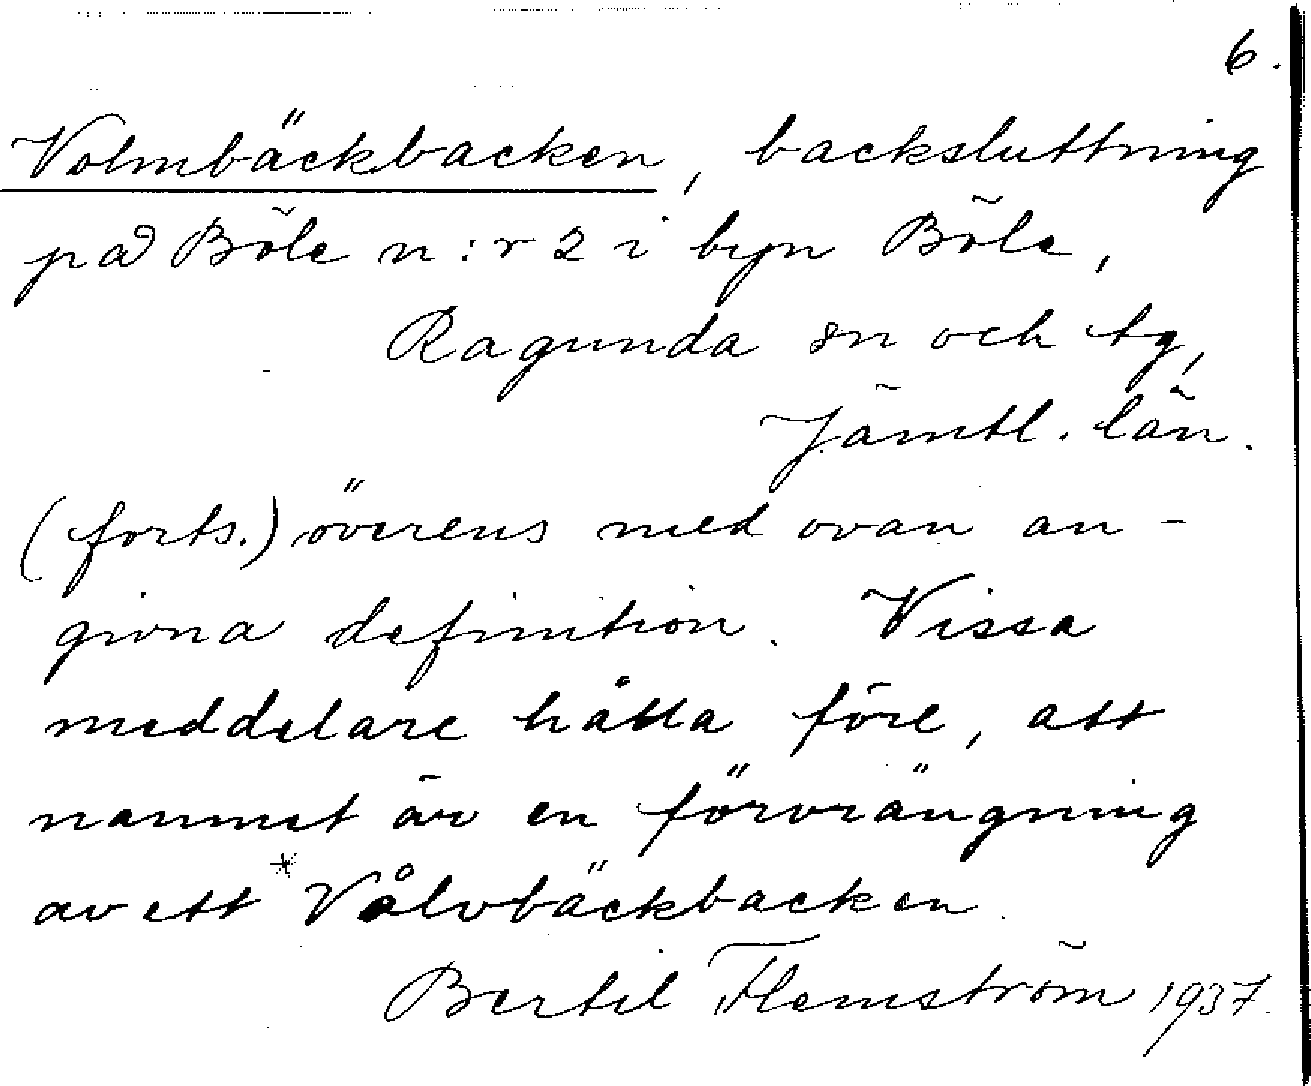 6.
Volmbäckbacken, backsluttning
på Böle n:r 2 i byn Böle,
Ragunda sn och tg,
Jämtl. län.
(forts.) överens med ovan an-
givna definition. Vissa
meddelare hålla före, att
namnet är en förvrängning
av ett *Vålvbäckbacken.
Bertil Flemström 1937.